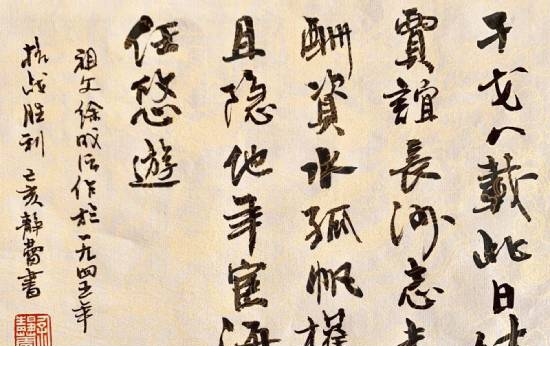 干戈八載此日
賈誼長沙志未
酬資水孤帆權
且隐他年宦海
任悠遊
祖父徐作於一九四五年
抗战胜利 己亥静書